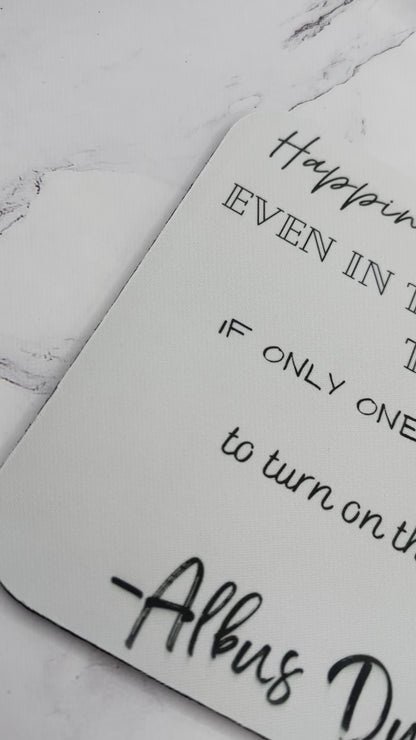 Happin
EVEN IN T
T
IF ONLY ONE
to turn on th
-Albus Du